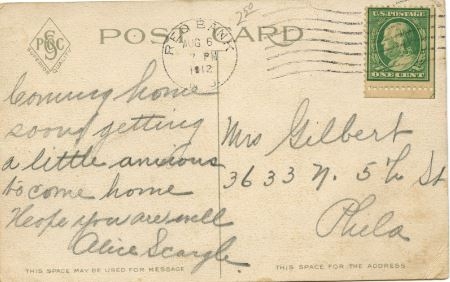 POST CARD
250
RED BANK
AUG 6
7 PM
1912
U.S. POSTAGE
ONE CENT
Coming home
soon getting
a little anxious
to come home
Hope you are well
Alice Scargle
Mrs Gilbert
3633 N. 5th St
Phila
THIS SPACE MAY BE USED FOR MESSAGE
THIS SPACE FOR THE ADDRESS